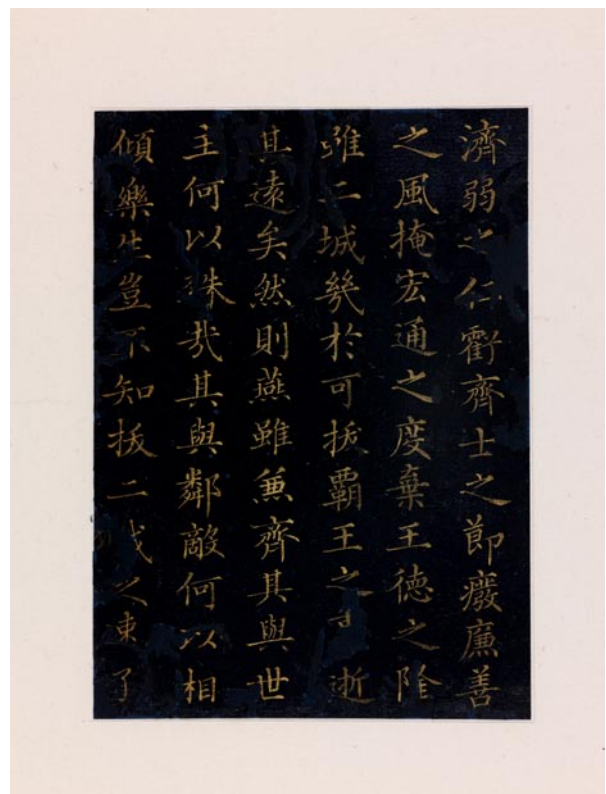 濟弱之仁虧齊士之節癈廉善
之風掩宏通之度棄王德之隆
雖二城幾於可拔霸王之事逝
其遠矣然則燕雖兼齊其與世
主何以殊哉其與鄰敵何以相
傾樂生豈不知拔二城之速了